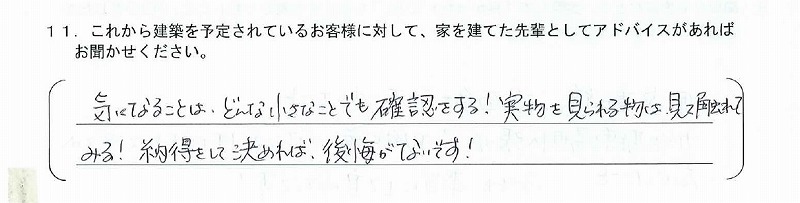 11. これから建築を予定されているお客様に対して、家を建てた先輩としてアドバイスがあれば
お聞かせください。
気になることは、どんな小さなことでも確認をする！実物を見られる物は見て触れて
みる！納得をして決めれば、後悔がないです！